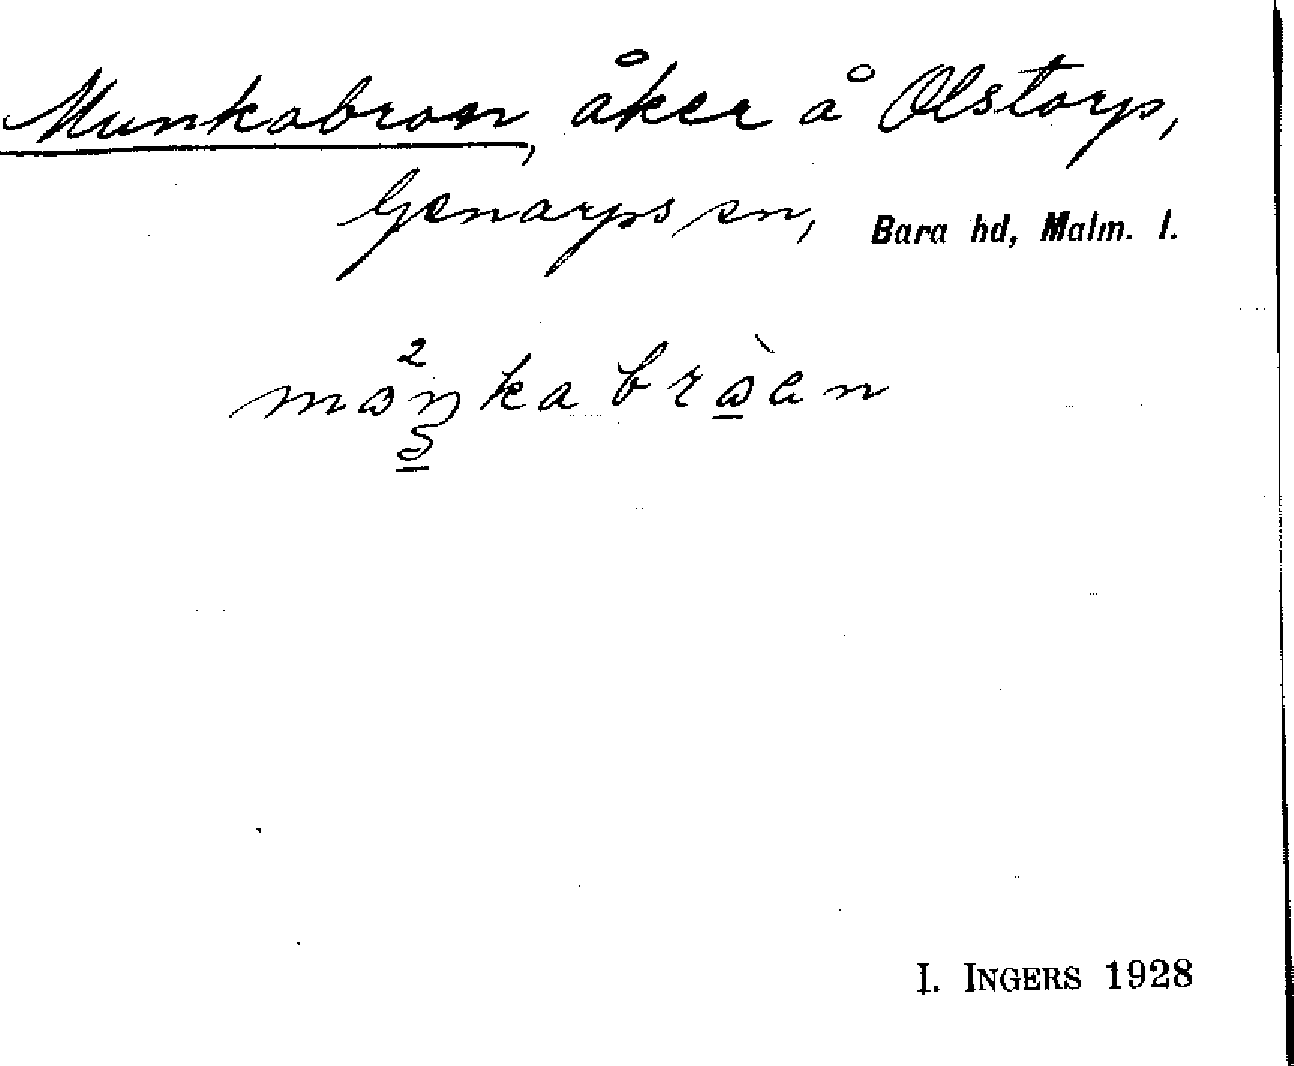 Munkabron, åker å Olstorp,
Genarps sn, Bara hd, Malm. l.
I. INGERS 1928